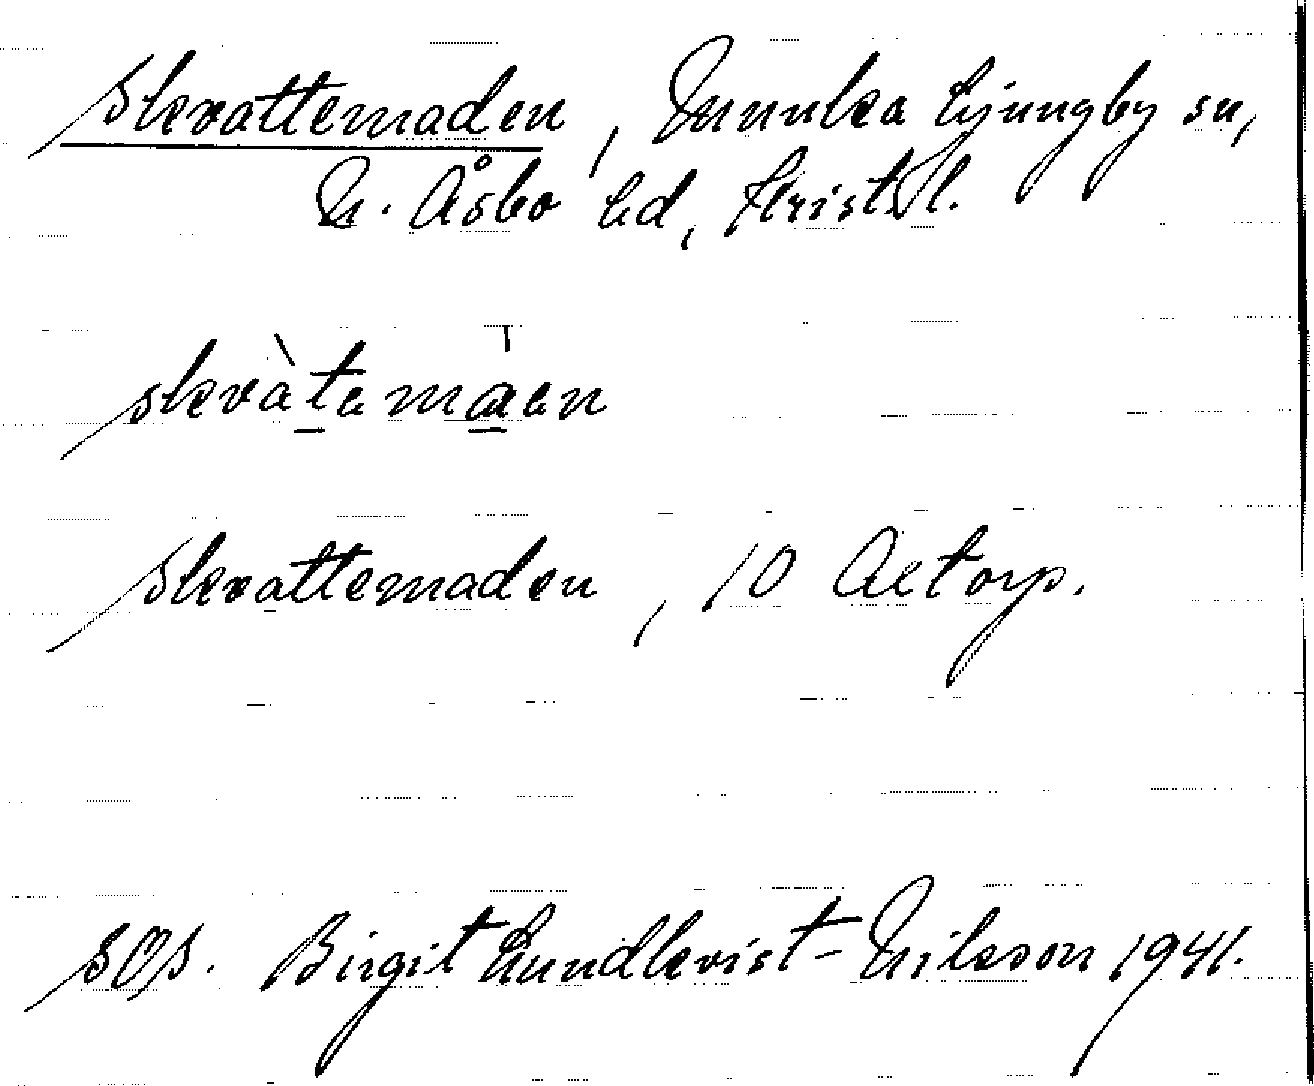 Skvattemaden, Munka Ljungby sn,
N. Åsbo hd, Krist. l.
skvàtemaen
Skvattemaden, 10 Aetorp.
SOS. Birgit Lundkvist-Nilsson 1941.